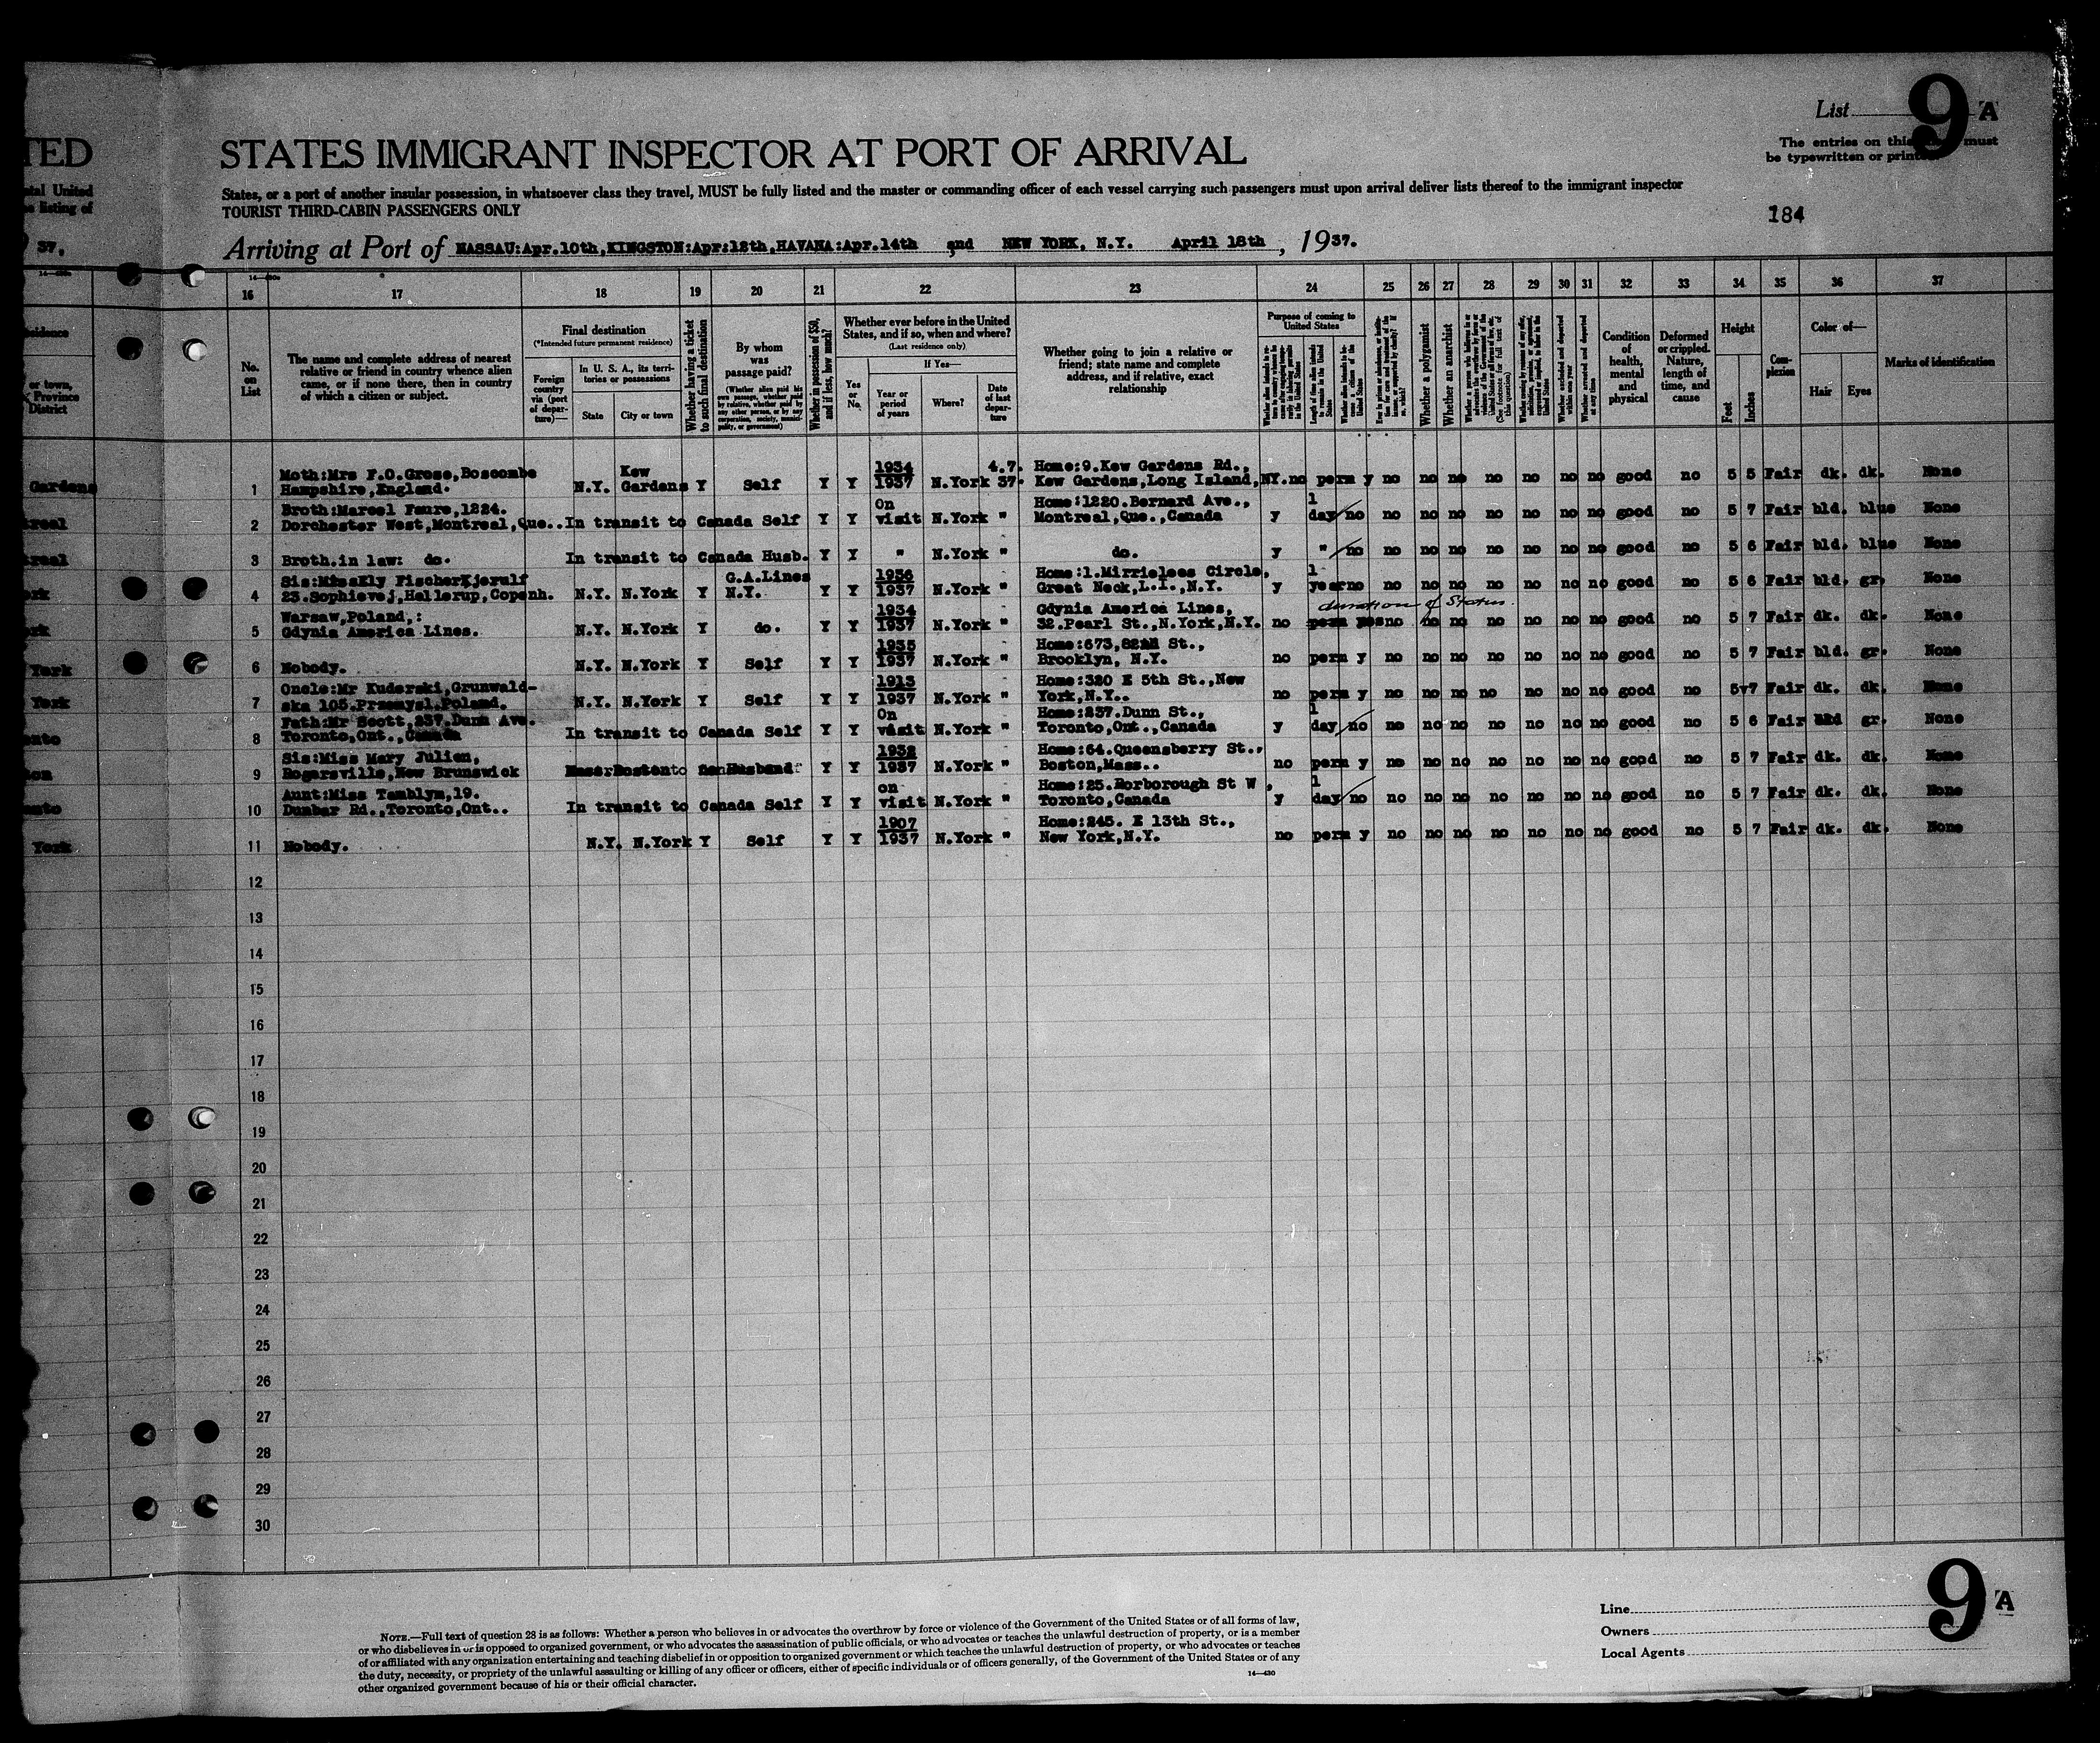 TED
List 9 A
STATES IMMIGRANT INSPECTOR AT PORT OF ARRIVAL
The entries on this must
be typewritten or printed
States, or a port of another insular possession, in whatsoever class they travel, MUST be fully listed and the master or commanding officer of each vessel carrying such passengers must upon arrival deliver lists thereof to the immigrant inspector
TOURIST THIRD-CABIN PASSENGERS ONLY
184
Arriving at Port of NASSAU:Apr.10th,KINGSTON:Apr:12th,HAVANA:Apr.14th and NEW YORK, N.Y. April 18th, 1937.
16 17 18 19 20 21 22 23 24 25 26 27 28 29 30 31 32 33 34 35 36 37
No. on List
The name and complete address of nearest relative or friend in country whence alien came, or if none there, then in country of which a citizen or subject.
Final destination
(*Intended future permanent residence)
Foreign country via (port of departure)—
In U. S. A., its territories or possessions
State
City or town
Whether having a ticket to such final destination
By whom was passage paid?
(Whether alien paid his own passage, whether paid by relative, whether paid by any other person, or by any corporation, society, municipality, or government)
Whether in possession of $50, and if less, how much?
Whether ever before in the United States, and if so, when and where?
(Last residence only)
Yes or No
If Yes—
Year or period of years
Where?
Date of last departure
Whether going to join a relative or friend; state name and complete address, and if relative, exact relationship
Purpose of coming to United States
Whether a polygamist
Whether an anarchist
Whether excluded and deported within one year
Whether arrested and deported at any time
Condition of health, mental and physical
Deformed or crippled. Nature, length of time, and cause
Height
Feet
Inches
Complexion
Color of—
Hair
Eyes
Marks of identification
1 Moth:Mrs F.O.Grose,Boscombe Hampshire,England. N.Y. Kew Gardens Y Self Y Y 1934 1937 N.York 4.7. 37. Home:9.Kew Gardens Rd., Kew Gardens,Long Island,NY. no perm y no no no no no no no good no 5 5 Fair dk. dk. None
2 Broth:Marcel Faure,1224. Dorchester West,Montreal,Que.. In transit to Canada Self Y Y On visit N.York " Home:1220.Bernard Ave., Montreal,Que.,Canada y 1 day no no no no no no no no good no 5 7 Fair bld. blue None
3 Broth.in law: do. In transit to Canada Husb. Y Y " N.York " do. y " no no no no no no no no good no 5 6 Fair bld. blue None
4 Sis:MissEly FischerKjerulf 23.Sophievej,Hellerup,Copenh. N.Y. N.York Y G.A.Lines N.Y. Y Y 1936 1937 N.York " Home:1.Mirrielees Circle, Great Neck,L.I.,N.Y. y 1 year no no no no no no no no good no 5 6 Fair bld. gr. None
duration of Status
5 Warsaw,Poland,: Gdynia America Lines. N.Y. N.York Y do. Y Y 1934 1937 N.York " Gdynia America Lines, 32.Pearl St.,N.York,N.Y. no perm yes no no no no no no no good no 5 7 Fair dk. dk. None
6 Nobody. N.Y. N.York Y Self Y Y 1935 1937 N.York " Home:673,82nd St., Brooklyn, N.Y. no perm y no no no no no no no good no 5 7 Fair bld. gr. None
7 Oncle:Mr Kuderski,Grunwald- ska 105.Przemysl.Poland. N.Y. N.York Y Self Y Y 1913 1937 N.York " Home:320 E 5th St.,New York,N.Y.. no perm y no no no no no no no good no 5 7 Fair dk. dk. None
8 Fath:Mr Scott,237.Dunn Ave. Toronto,Ont.,Canada In transit to Canada Self Y Y On visit N.York " Home:237.Dunn St., Toronto,Ont.,Canada y 1 day no no no no no no no no good no 5 6 Fair gr. None
9 Sis:Miss Mary Julien, Rogersville,New Brunswick Mass Boston Husband Y Y 1932 1937 N.York " Home:64.Queensberry St., Boston,Mass.. no perm y no no no no no no no good no 5 7 Fair dk. dk. None
10 Aunt:Miss Tamblyn,19. Dunbar Rd.,Toronto,Ont.. In transit to Canada Self Y Y on visit N.York " Home:25.Rorborough St W, Toronto,Canada y 1 day no no no no no no no no good no 5 7 Fair dk. dk. None
11 Nobody. N.Y. N.York Y Self Y Y 1907 1937 N.York " Home:245. E 13th St., New York,N.Y. no perm y no no no no no no no good no 5 7 Fair dk. dk. None
12
13
14
15
16
17
18
19
20
21
22
23
24
25
26
27
28
29
30
NOTE.—Full text of question 28 is as follows: Whether a person who believes in or advocates the overthrow by force or violence of the Government of the United States or of all forms of law,
or who disbelieves in or is opposed to organized government, or who advocates the assassination of public officials, or who advocates or teaches the unlawful destruction of property, or is a member
of or affiliated with any organization entertaining and teaching disbelief in or opposition to organized government or which teaches the unlawful destruction of property, or who advocates or teaches
the duty, necessity, or propriety of the unlawful assaulting or killing of any officer or officers, either of specific individuals or of officers generally, of the Government of the United States or of any
other organized government because of his or their official character.
14—430
Line
Owners
Local Agents
9 A